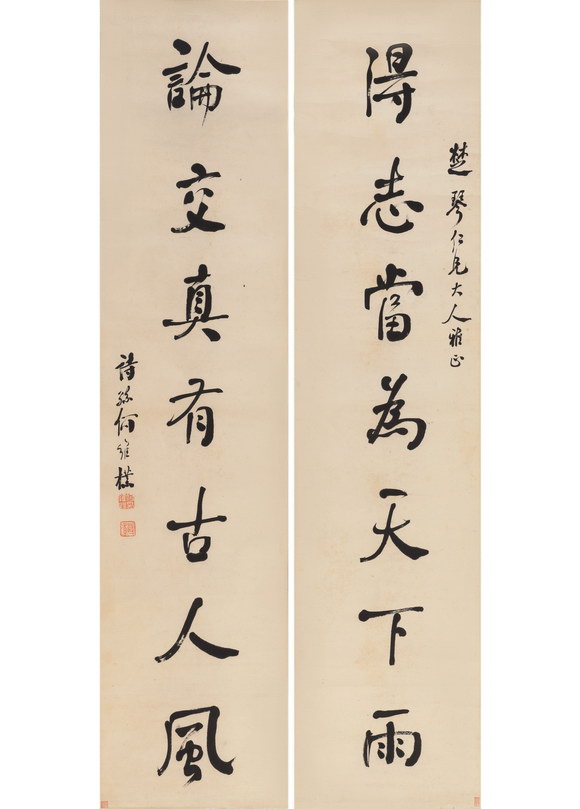 楚琴仁兄大人雅正
得志當為天下雨
論交真有古人風
詩孫何維樸